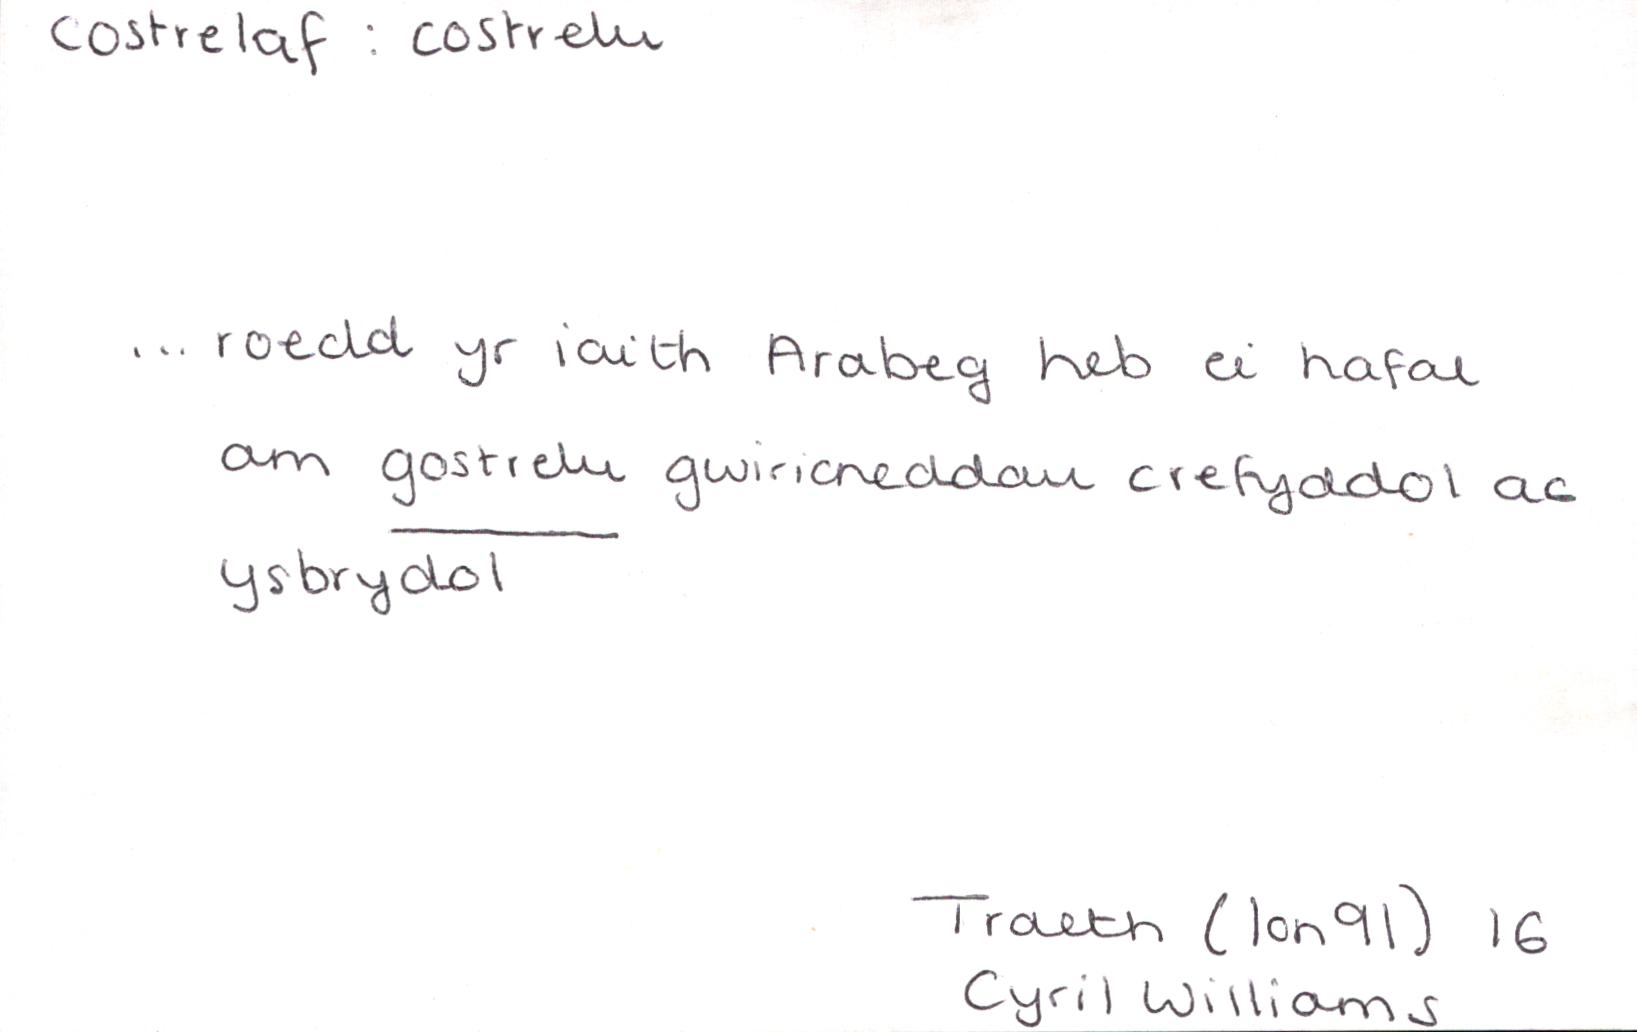 costrelaf : costrelu
... roedd yr iaith Arabeg heb ei hafal
am gostrelu gwirioneddau crefyddol ac
ysbrydol
Traeth (Ion 91) 16
Cyril Williams